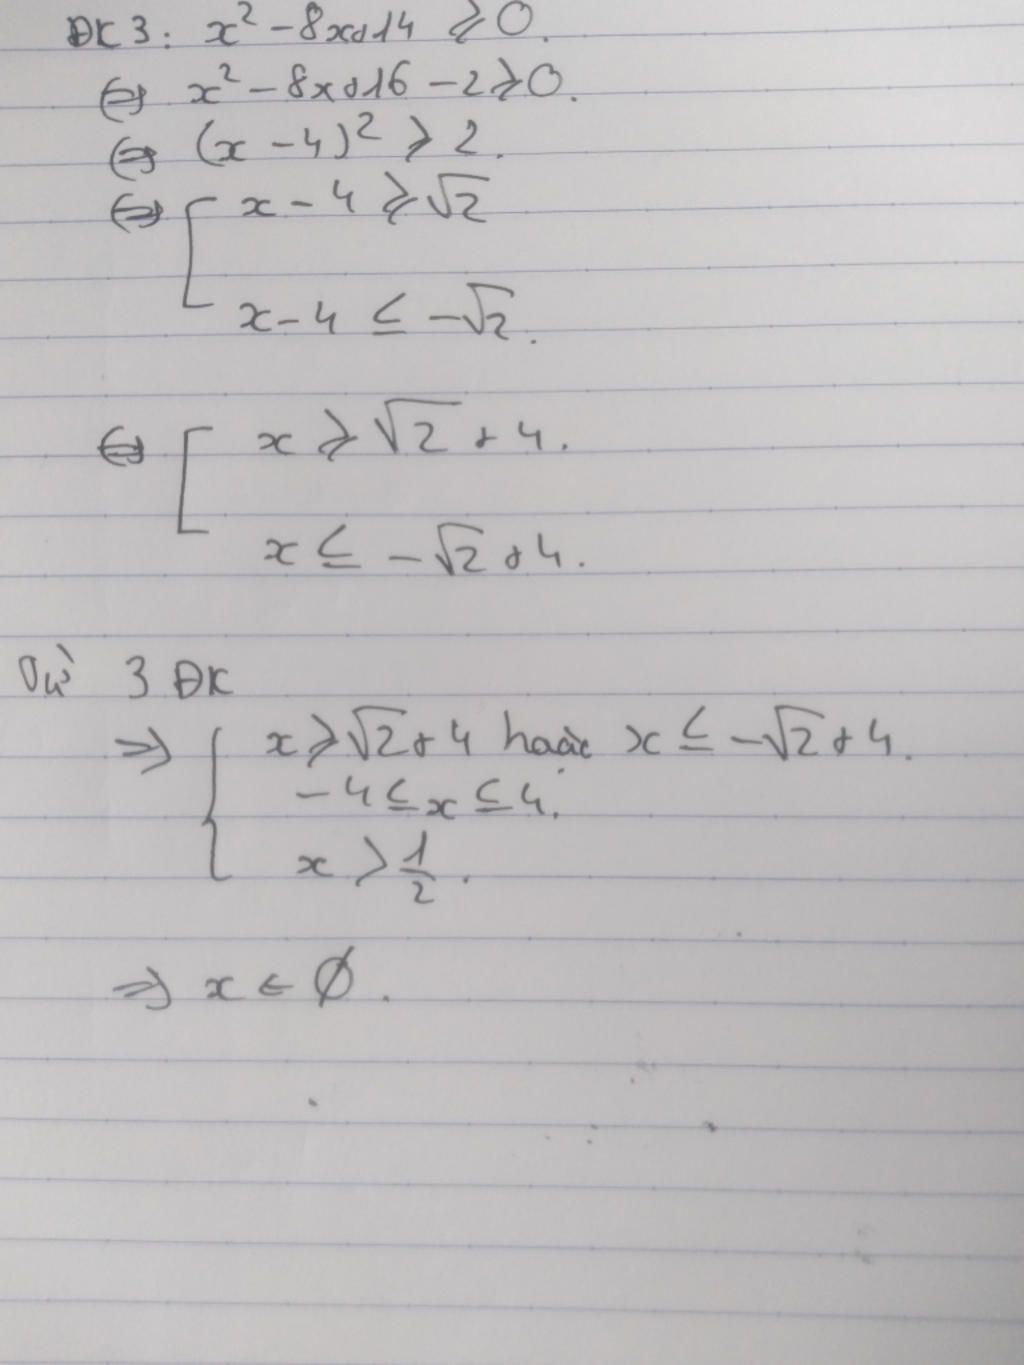 ĐK 3: x² - 8x + 14 ≥ 0.
⇔ x² - 8x + 16 - 2 ≥ 0.
⇔ (x - 4)² ≥ 2.
⇔ [ x - 4 ≥ √2
x - 4 ≤ -√2.
⇔ [ x ≥ √2 + 4.
x ≤ -√2 + 4.
Từ 3 ĐK
⇒ { x ≥ √2 + 4 hoặc x ≤ -√2 + 4.
-4 ≤ x ≤ 4.
x > 1/2.
⇒ x ∈ ∅.